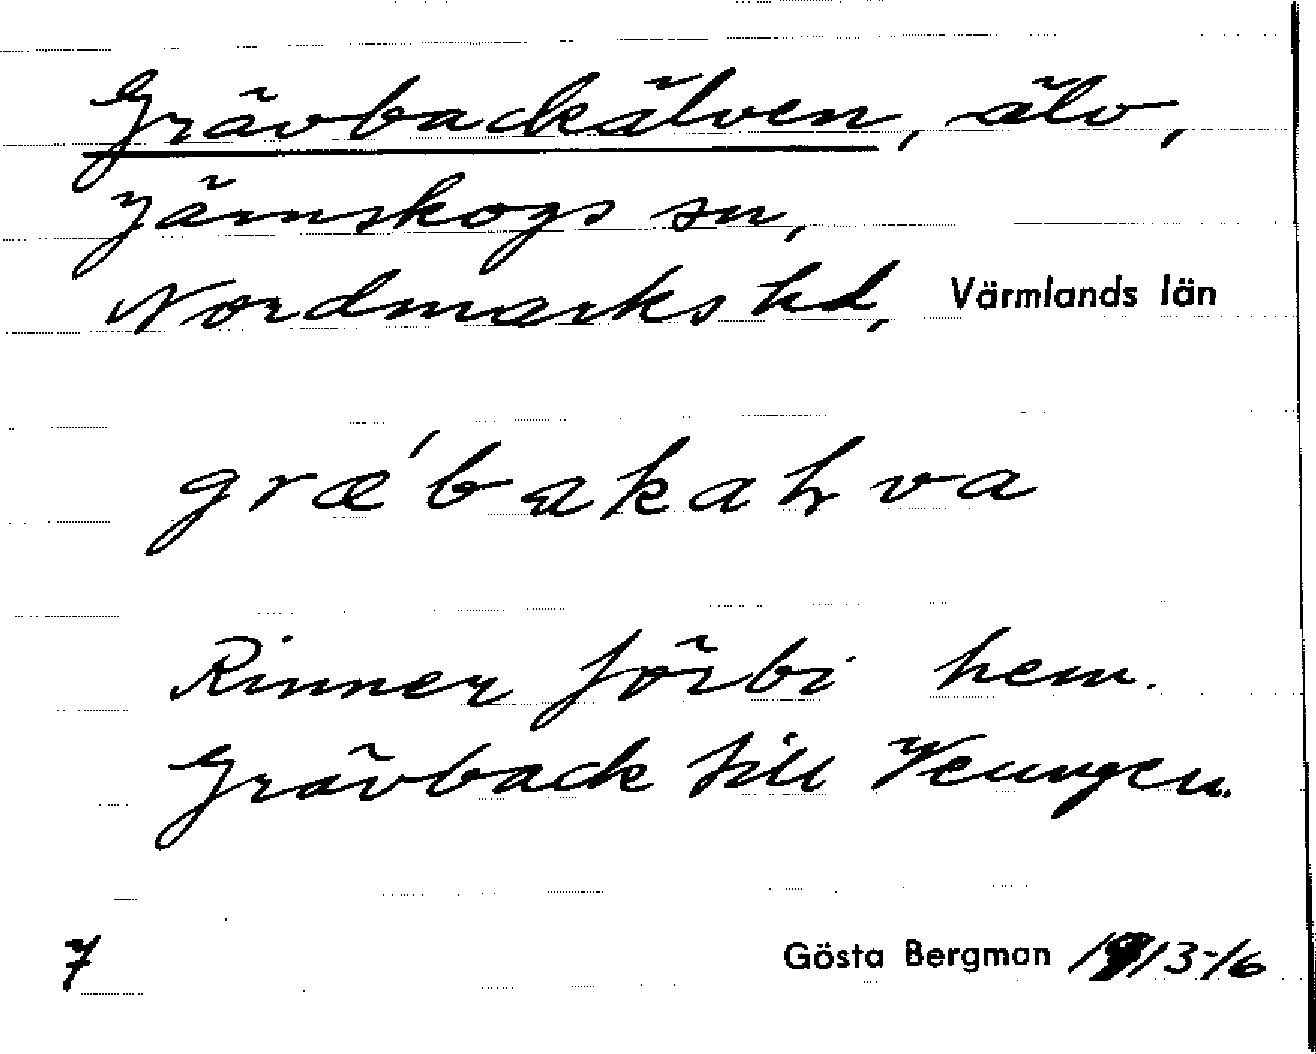 Grävbackälven, älv,
Järnskogs sn,
Nordmarks hd, Värmlands län
græ´bakaḷva
Rinner förbi hem.
Grävback till Vennngen.
7 Gösta Bergman 1913-16